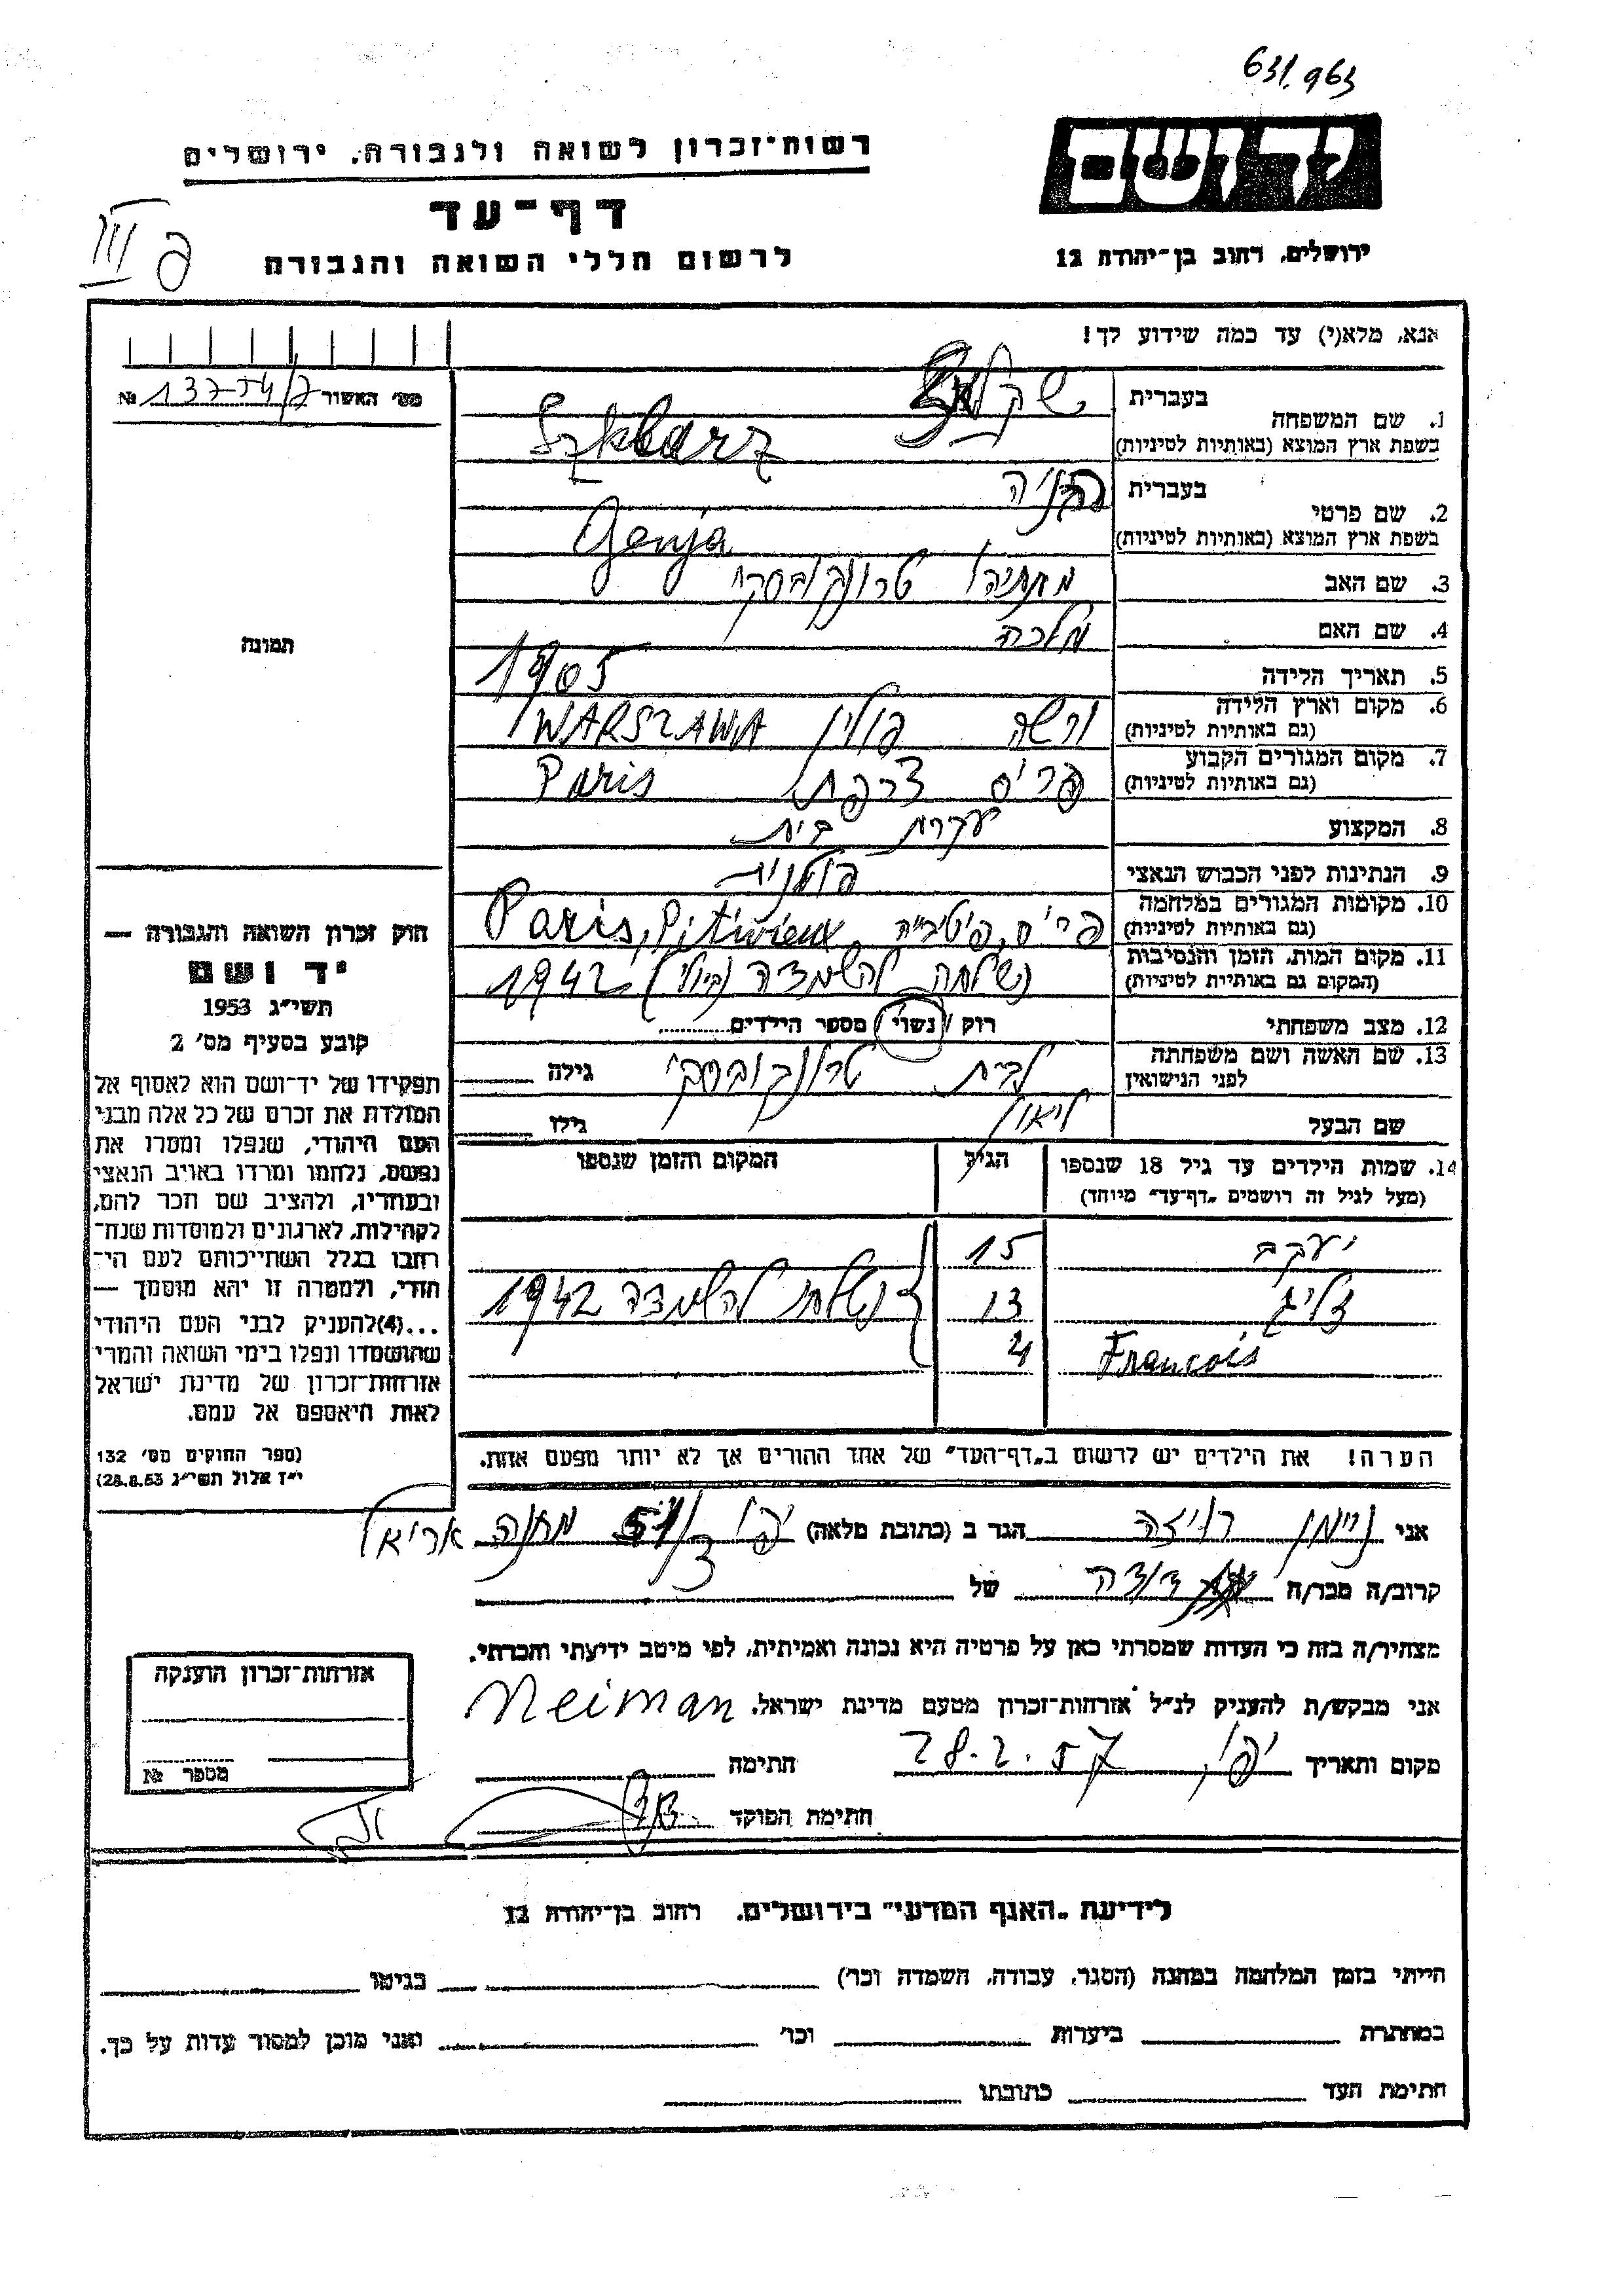 631.963
יד ושם
רשות־זכרון לשואה ולגבורה, ירושלים
דף־עד
לרשום חללי השואה והגבורה
ירושלים, רחוב בן־יהודה 12
III פ
אנא, מלא(י) עד כמה שידוע לך!
מס׳ האשור 13754/7 №
1. שם המשפחה
בעברית
בשפת ארץ המוצא (באותיות לטיניות) Szklarz
2. שם פרטי
בעברית
בשפת ארץ המוצא (באותיות לטיניות) Genja
3. שם האב מתתיהו טרונקובסקי
4. שם האם מלכה
5. תאריך הלידה 1905
6. מקום וארץ הלידה
(גם באותיות לטיניות) ורשה פולין WARSZAWA
7. מקום המגורים הקבוע
(גם באותיות לטיניות) פריס צרפת Paris
8. המקצוע עקרת בית
9. הנתינות לפני הכבוש הנאצי פולנית
10. מקומות המגורים במלחמה
(גם באותיות לטיניות) פריס, פיטביה Paris, Pitivieux
11. מקום המות, הזמן והנסיבות
(המקום גם באותיות לטיניות) נשלחה להשמדה (ביולי) 1942
12. מצב משפחתי רוק / נשוי / מספר הילדים
13. שם האשה ושם משפחתה
לפני הנישואין לבית טרונקובסקי גילה
שם הבעל ליאון גילו
14. שמות הילדים עד גיל 18 שנספו הגיל המקום והזמן שנספו
(מעל לגיל זה רושמים „דף־עד” מיוחד)
יעקב 15
זליג 13 נשלחו להשמדה 1942
Francois 4
הערה! את הילדים יש לרשום ב„דף־העד” של אחד ההורים אך לא יותר מפעם אחת.
תמונה
חוק זכרון השואה והגבורה —
יד ושם
תשי״ג 1953
קובע בסעיף מס׳ 2
תפקידו של יד־ושם הוא לאסוף אל
המולדת את זכרם של כל אלה מבני
העם היהודי, שנפלו ומסרו את
נפשם, נלחמו ומרדו באויב הנאצי
ובעוזריו, ולהציב שם וזכר להם,
לקהילות, לארגונים ולמוסדות שנח־
רבו בגלל השתייכותם לעם הי־
הודי, ולמטרה זו יהא מוסמך —
...(4) להעניק לבני העם היהודי
שהושמדו ונפלו בימי השואה והמרי
אזרחות־זכרון של מדינת ישראל
לאות היאספם אל עמם.
(ספר החוקים מס׳ 132
י״ז אלול תשי״ג 28.8.53)
אני ניימן רויזה הגר ב (כתובת מלאה) יפו מחנה אריאל
קרוב/ה מכר/ה דודה של
מצהיר/ה בזה כי העדות שמסרתי כאן על פרטיה היא נכונה ואמיתית, לפי מיטב ידיעתי והכרתי.
אני מבקש/ת להעניק לנ״ל אזרחות־זכרון מטעם מדינת ישראל. Neiman
מקום ותאריך יפו, 28.2.57 חתימה
חתימת הפוקד
אזרחות־זכרון הוענקה
מספר №
לידיעת „האגף המדעי” בירושלים, רחוב בן־יהודה 12
הייתי בזמן המלחמה במחנה (הסגר, עבודה, השמדה וכו׳) בגיטו
במחתרת ביערות וכו׳ ואני מוכן למסור עדות על כך.
חתימת העד כתובתו